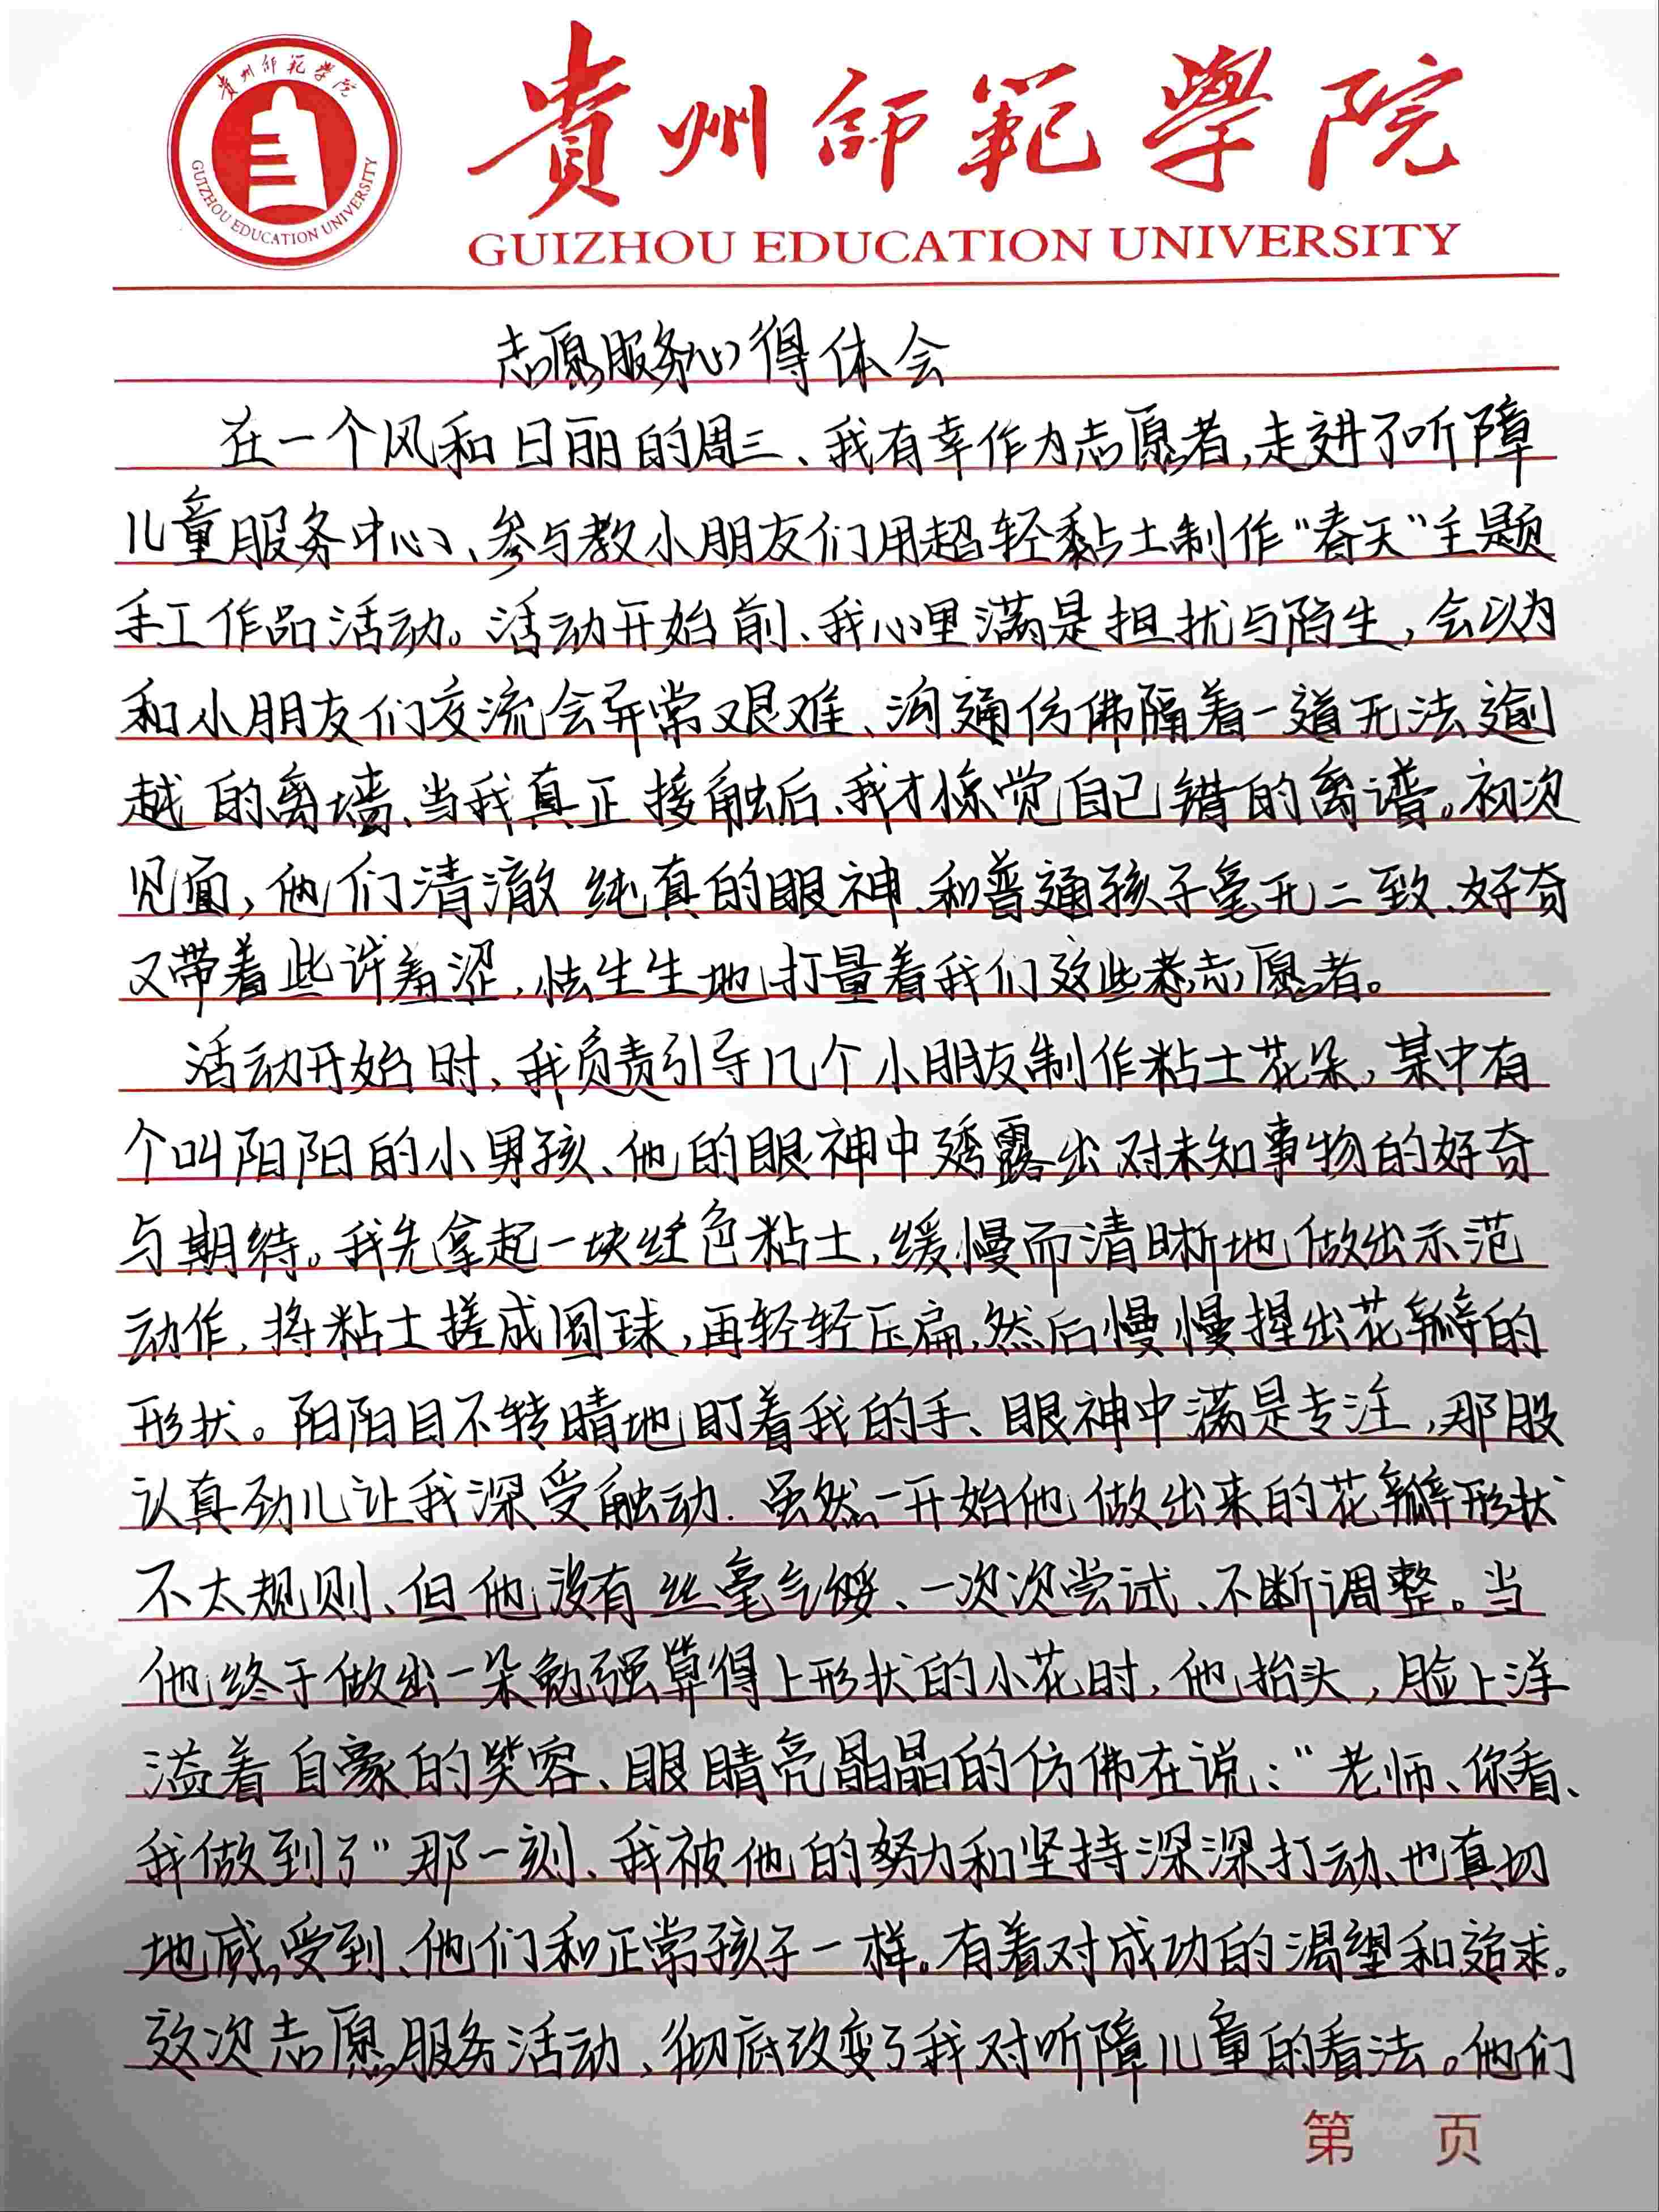 貴州师範學院
GUIZHOU EDUCATION UNIVERSITY
貴州师範學院
GUIZHOU EDUCATION UNIVERSITY
志愿服务心得体会
在一个风和日丽的周三、我有幸作为志愿者,走进了听障
儿童服务中心、参与教小朋友们用超轻黏土制作“春天”主题
手工作品活动。活动开始前、我心里满是担扰与陌生,会以为
和小朋友们交流会异常艰难、沟通仿佛隔着一道无法逾
越的离墙、当我真正接触后、我才惊觉自己错的离谱。初次
见面,他们清澈纯真的眼神、和普通孩子毫无二致、好奇
又带着些许羞涩,怯生生地打量着我们这些志愿者。
活动开始时,我负责引导几个小朋友制作粘土花朵,某中有
个叫阳阳的小男孩、他的眼神中透露出对未知事物的好奇
与期待。我先拿起一块红色粘土,缓慢而清晰地做出示范
动作,将粘土搓成圆球,再轻轻压扁,然后慢慢捏出花瓣的
形状。阳阳目不转睛地盯着我的手、眼神中满是专注,那股
认真劲儿让我深受触动.虽然一开始他做出来的花瓣形状
不太规则、但他没有丝毫气馁、一次次尝试、不断调整。当
他终于做出一朵勉强算得上形状的小花时,他抬头,脸上洋
溢着自豪的笑容、眼睛亮晶晶的仿佛在说:“老师、你看、
我做到了”那一刻、我被他的努力和坚持深深打动、也真切
地感受到、他们和正常孩子一样。有着对成功的渴望和追求。
这次志愿服务活动、彻底改变了我对听障儿童的看法。他们
第 页